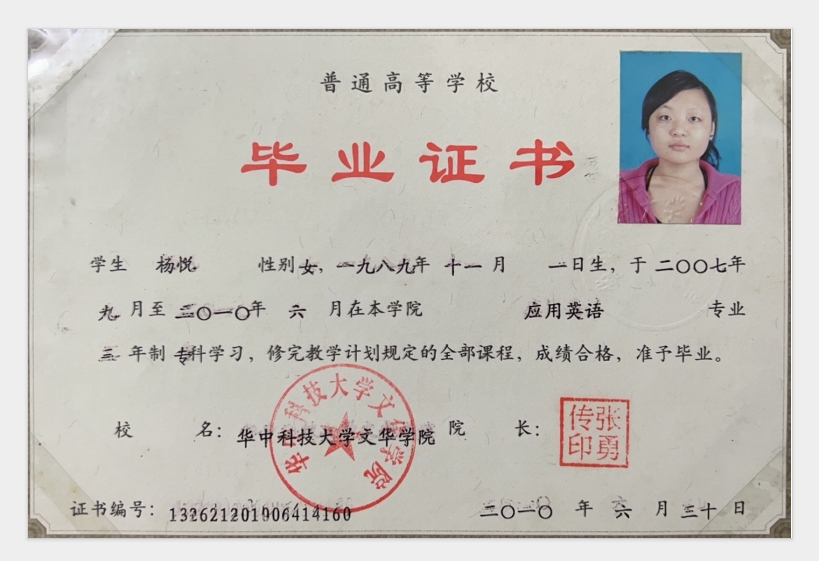 普通高等学校
毕业证书
学生 杨悦 性别 女，一九八九年 十一 月 一日生，于 二〇〇七年
九 月至 二〇一〇年 六 月在本学院 应用英语 专业
三 年制 专科学习，修完教学计划规定的全部课程，成绩合格，准予毕业。
校 名：华中科技大学文华学院 院 长：
华中科技大学文华学院
张勇传印
证书编号：132621201906414160 二〇一〇 年 六 月 三十 日